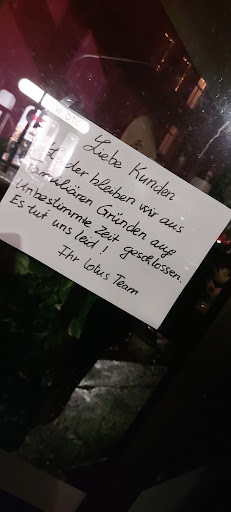 Liebe Kunden
Leider bleiben wir aus
familiären Gründen auf
Unbestimmte Zeit geschlossen.
Es tut uns leid!
Ihr Lotus Team